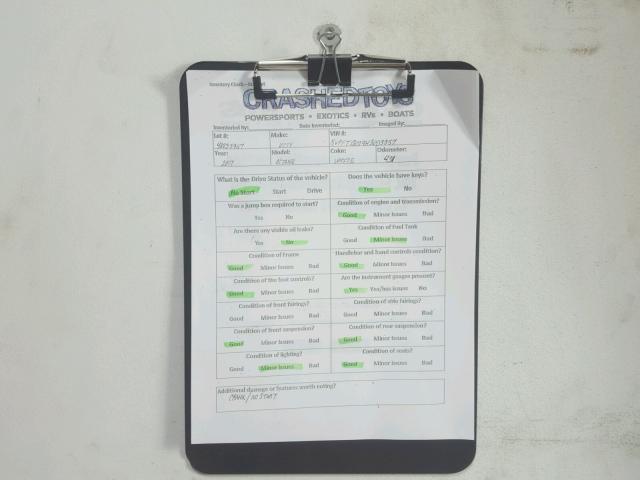 CRASHEDTOYS
POWERSPORTS • EXOTICS • RVs • BOATS
Inventoried By: Date Inventoried: Imaged By:
Lot #: Make: VIN #:
Year: Model: Color: Odometer:
What is the Drive Status of the vehicle? Does the vehicle have keys?
No Start Start Drive Yes No
Was a jump box required to start? Condition of engine and transmission?
Yes No Good Minor Issues Bad
Are there any visible oil leaks? Condition of Fuel Tank
Yes No Good Minor Issues Bad
Condition of Frame Handlebar and hand controls condition?
Good Minor Issues Bad Good Minor Issues Bad
Condition of the foot controls? Are the instrument gauges present?
Good Minor Issues Bad Yes Yes/has issues No
Condition of front fairings? Condition of side fairings?
Good Minor Issues Bad Good Minor Issues Bad
Condition of front suspension? Condition of rear suspension?
Good Minor Issues Bad Good Minor Issues Bad
Condition of lighting? Condition of seats?
Good Minor Issues Bad Good Minor Issues Bad
Additional damage or features worth noting?
CRANK/NO START